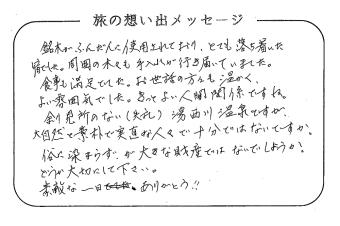 旅の想い出メッセージ
銘木がふんだんに使用されており、とても落ち着いた
宿でした。周囲の木々も手入れが行き届いていました。
食事も満足でした。お世話の方々も温かく、
よい雰囲気でした。きっとよい人間関係ですね。
余り見所のない(失礼)湯西川温泉ですが、
大自然と素朴で実直な人々で十分ではないですか。
俗に染まらず、が大きな財産ではないでしょうか!
どうか大切にして下さい。
素敵な一日 ありがとう!!